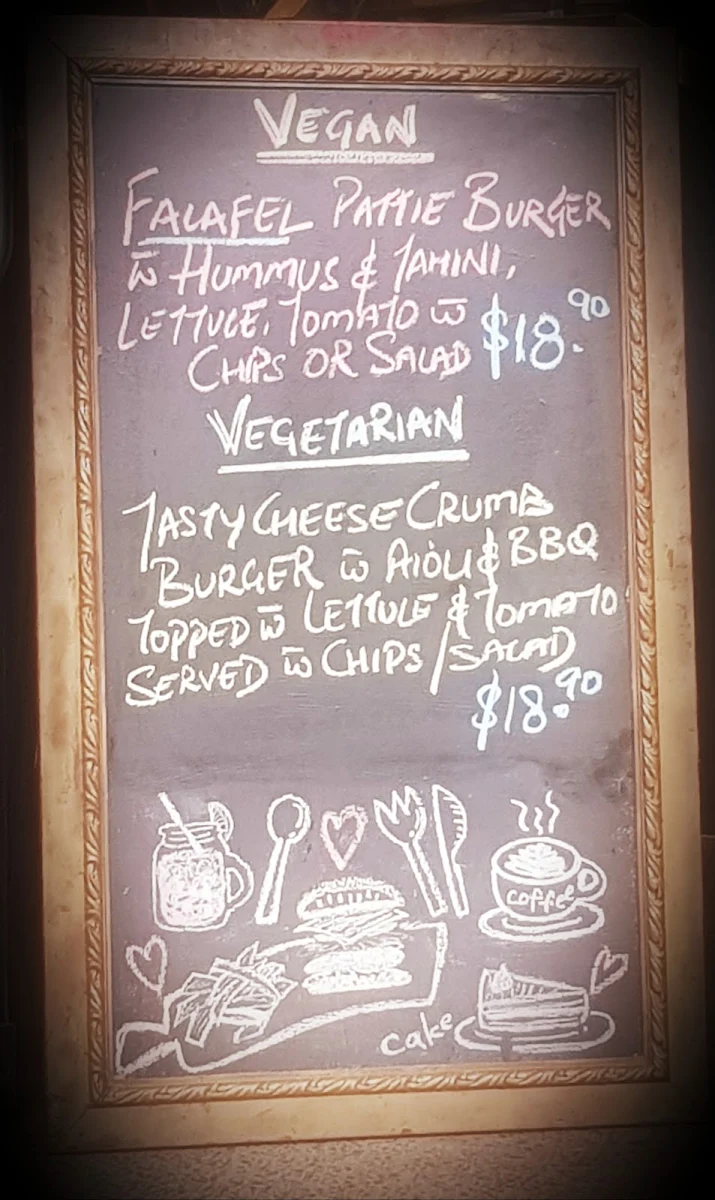 VEGAN
FALAFEL PATTIE BURGER
w̄ HUMMUS & TAHINI,
LETTUCE, TOMATO w̄
CHIPS OR SALAD $18.90
VEGETARIAN
TASTY CHEESE CRUMB
BURGER w̄ AIOLI & BBQ
TOPPED w̄ LETTUCE & TOMATO
SERVED w̄ CHIPS / SALAD
$18.90
coffee
cake